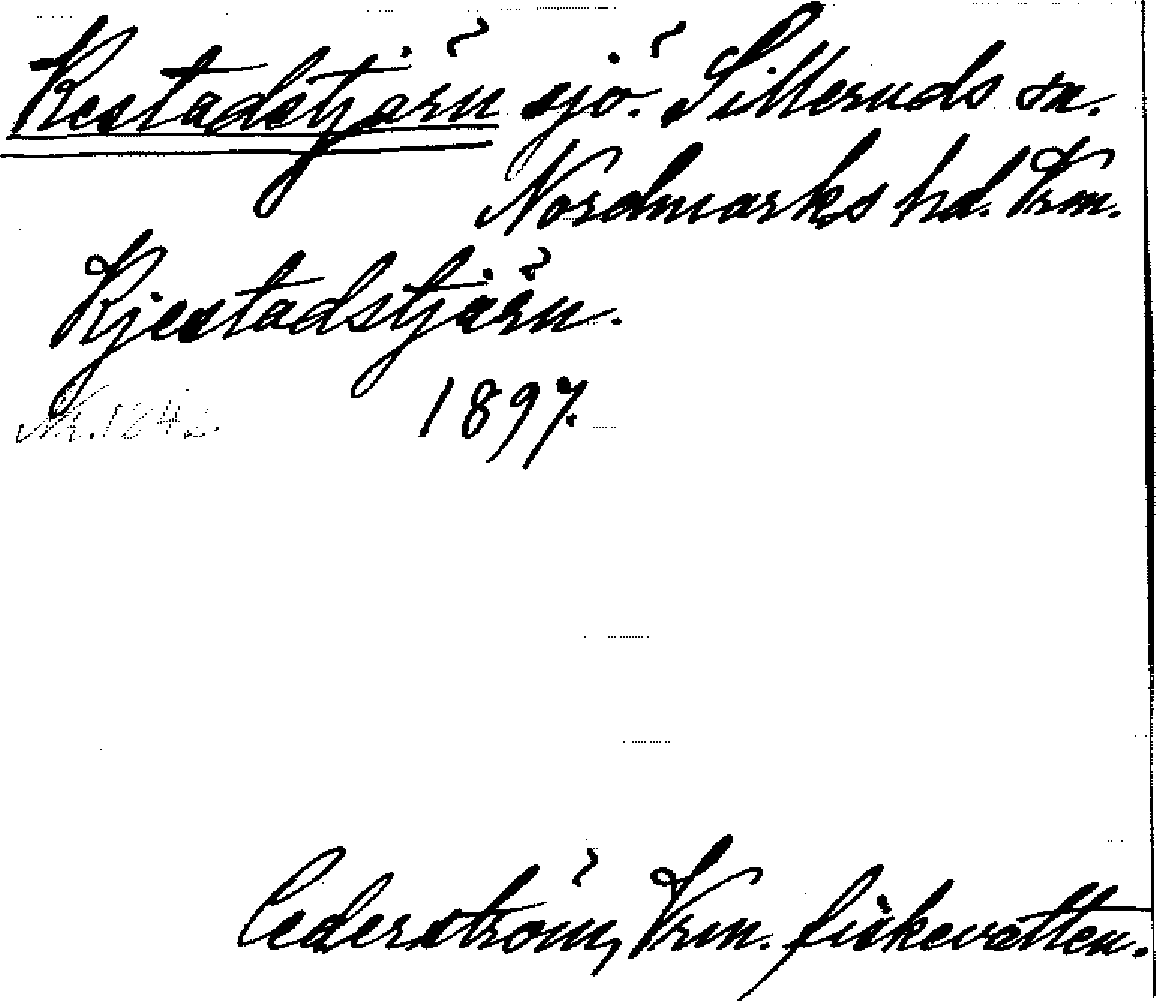 Kestadstjärn sjö. Silleruds sn.
Nordmarks hd. Vrm.
Kjestadstjärn.
1897.
Nr.
Cederström, Vrm. fiskevatten.